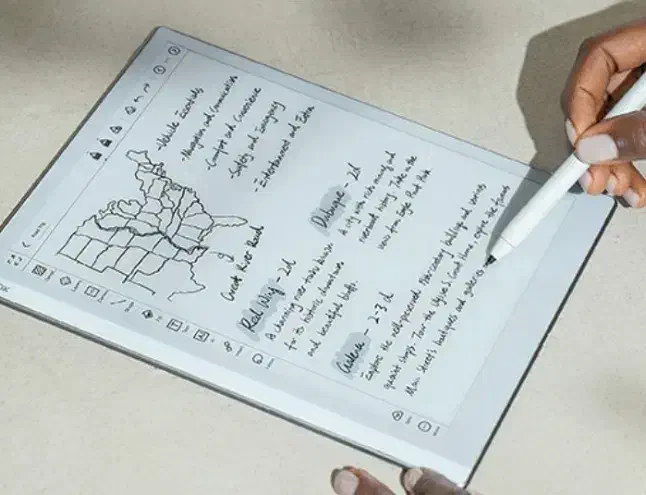 - Vehicle Essentials
- Navigation and Communication
- Comfort and Convenience
- Safety and Emergency
- Entertainment and Extra
Great River Road
Red Wing - 2d
A charming river town known
for its historic downtown
and beautiful bluffs.
Dubuque - 2d
A city with rich history and
riverboat history. Take in the
views from Eagle Point Park
Galena - 2-3 d
Explore the well-preserved 19th-century buildings and
quaint shops. Tour the Ulysses S. Grant Home, explore the famous
Main Street's boutiques and galleries